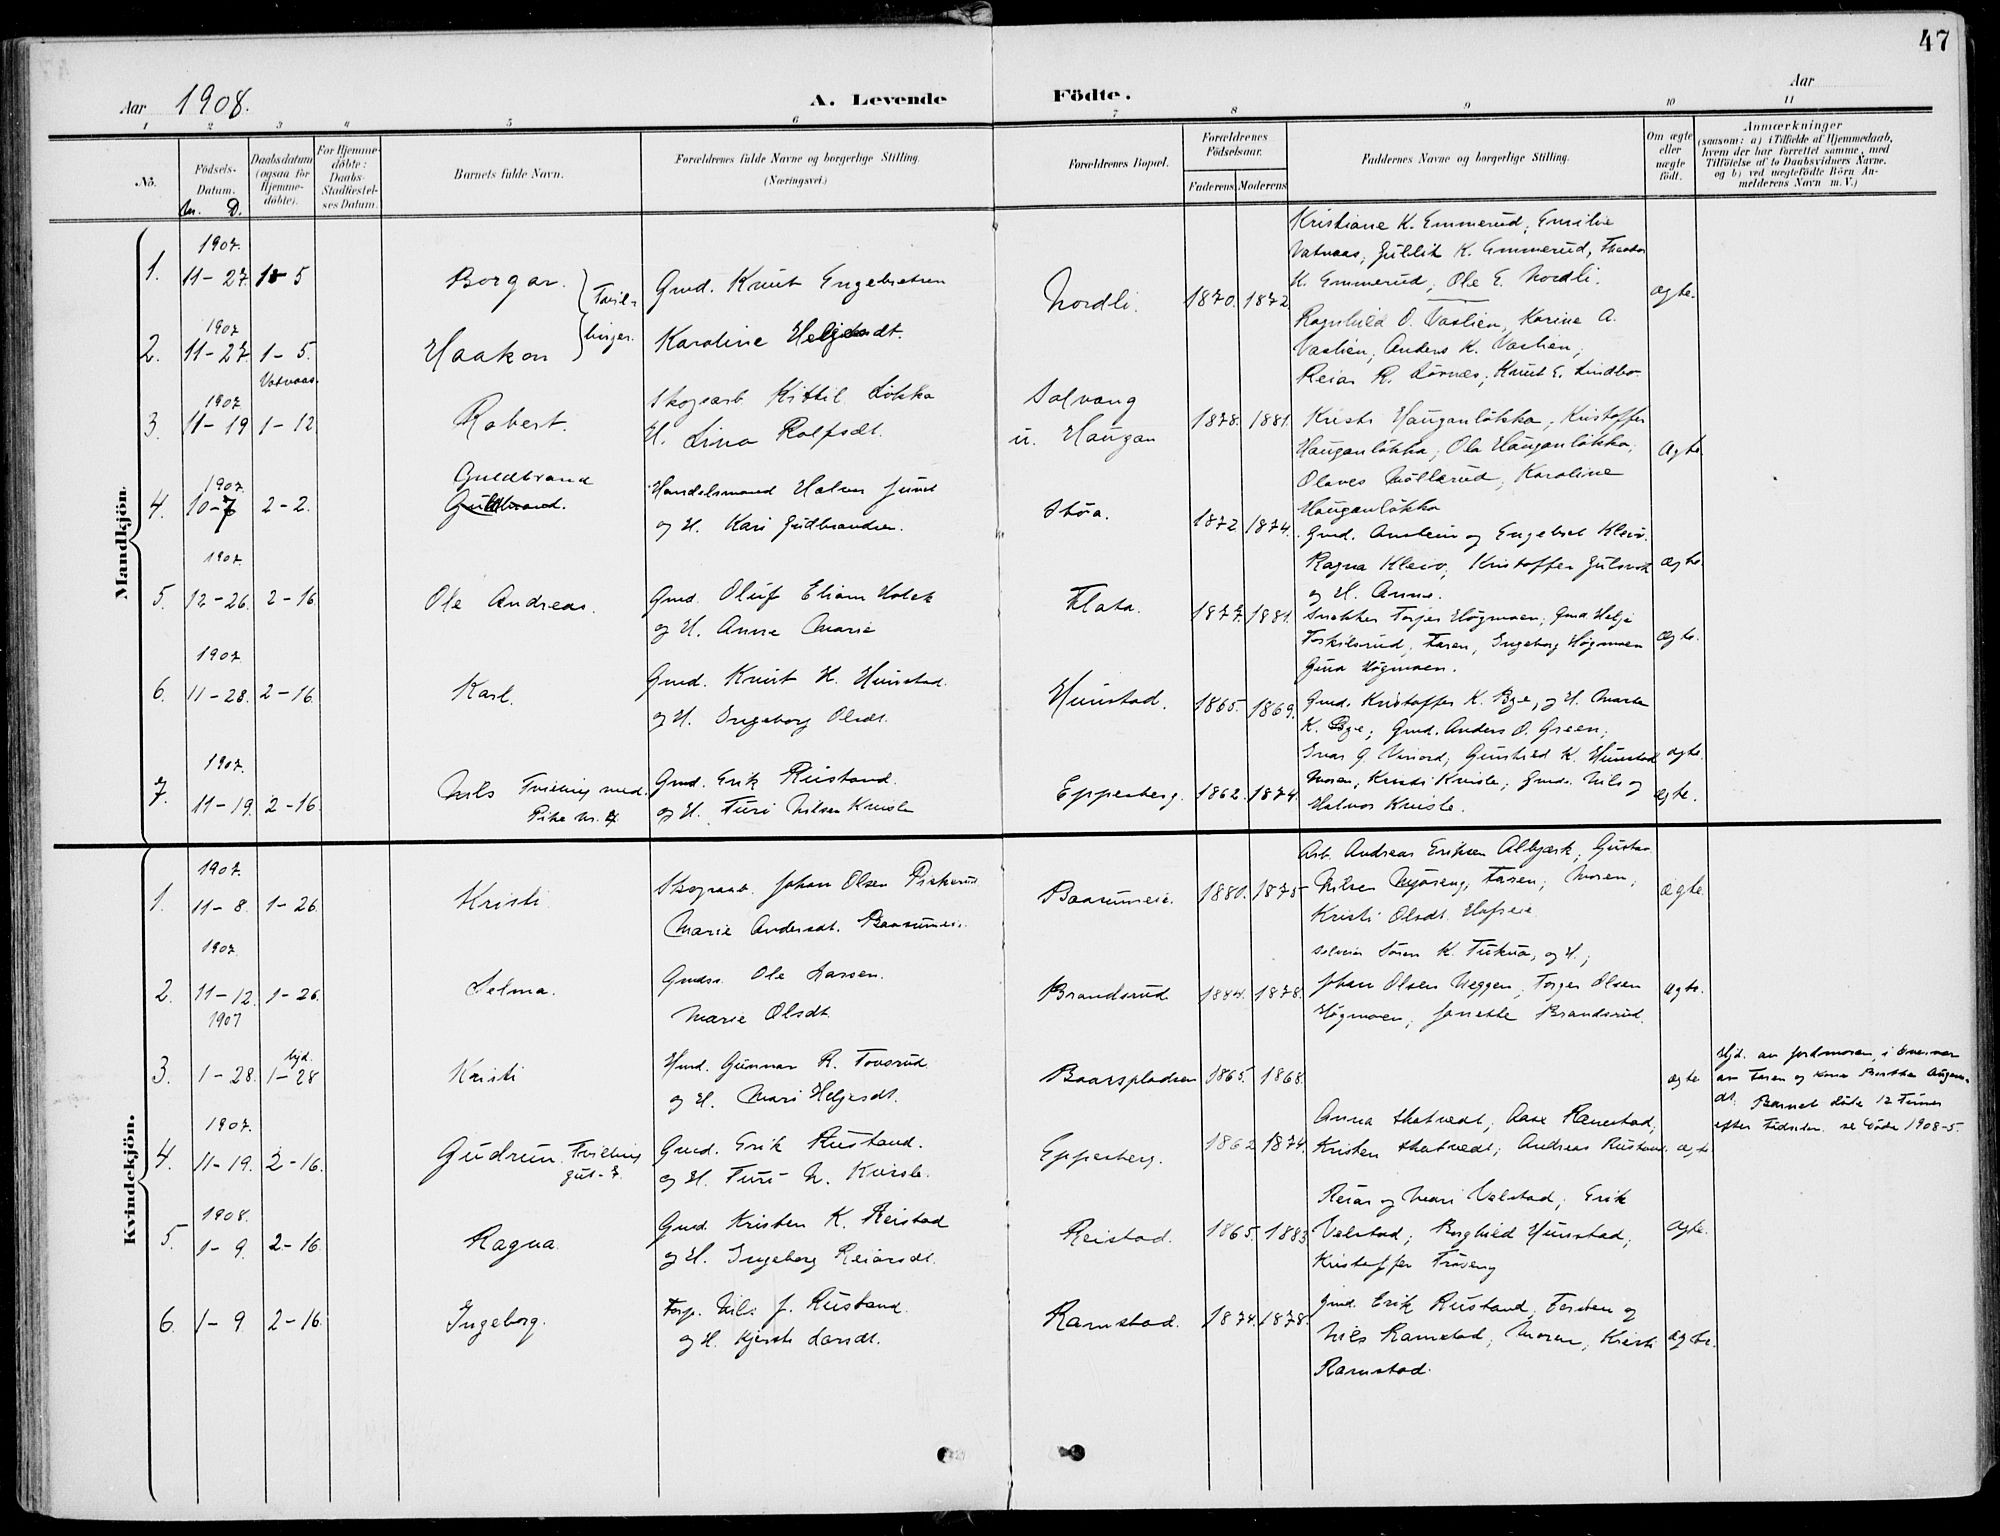 47
Aar 1908.
A. Levende Födte.
Aar
1 2 3 4 5 6 7 8 9 10 11
No.
Födsels-Datum.
M. D.
Daabsdatum (ogsaa for Hjemme-döbte).
For Hjemme-döbte: Daabs-Stadfæstel-ses Datum.
Barnets fulde Navn.
Forældrenes fulde Navne og borgerlige Stilling.
(Næringsvei.)
Forældrenes Bopæl.
Forældrenes Födselsaar.
Faderens Moderens
Faddernes Navne og borgerlige Stilling.
Om ægte eller uægte födt.
Anmærkninger
(saasom: a) i Tilfælde af Hjemmedaab,
hvem der har forrettet samme, med
Tilföielse af to Daabsvidners Navne,
og b) ved uægtefödte Börn An-
melderens Navn m. V.)
Mandkjön.
1. 1907. 11-27. 1-5 Borgar. } Tvil-
Gmd. Knut Engebretsen
Nordli. 1870. 1872
Kristiane K. Emmerud, Emilie
Vatnaas, Gullik K. Emmerud,
K. Emmerud, Ole E. Nordli.
ægte.
2. 1907 11-27. 1-5. Vatnaas. Haakon } linger.
Karoline Helgesdt.
Ragnhild O. Vaslien, Karine A.
Vaslien, Anders K. Vaslien,
Reiar R. Kut E. Lindbo
3. 1907 11-19 1-12 Robert.
Skogsarb Kittil Løkka
H. Lina Rolfsdt.
Solvang
u. Haugan 1878. 1881.
Kristi Hauganløkka, Kristoffer
Hauganløkka, Ola Hauganløkka,
Olaves Møllerud, Karoline
Hauganløkka
ægte
4. 1907. 10-7 2-2. Guldbrand
Handelsmand Halvor Juvet
og H. Kari Gudbrandsen.
Støa. 1872 1874.
Gmd. Anstein og Engebret Kleiv.
Ragna Kleiv, Kristoffer
og H. Anne.
ægte
5. 1907. 12-26. 2-16 Ole Andreas.
Gmd. Oluf Eliam Holck
og H. Anne Marie
Flata. 1877. 1881.
Snekker Torger Høgmoen, Gmd Helge
Torkilsrud, Faren, Ingeborg Høgmoen
Gina Høgmoen.
ægte.
6. 1907. 11-28. 2-16. Karl.
Gmd. Knut H. Hunstad.
og H. Ingeborg Olsdt.
Hunstad. 1865. 1869.
Gmd. Kristoffer K. Bye, og H. Marte
K. Bye, Gmd. Anders O. Green,
Ivar G. Gunhild K. Hunstad
ægte.
7. 1907. 11-19. 2-16. Nils Tvilling med
Pike Nr. 4
Gmd. Erik Rustand
og H. Turi Nilsen Kvisle
Eppeberg. 1862. 1874.
Moren, Kristi Kvisle, Gmd. Nils og
Halvor Kvisle.
ægte.
Kvindekjön.
1. 1907. 11-8. 1-26. Kristi
Skogsarb. Johan Olsen
Marie Andersdt. Baarumeie.
Baarumeie. 1880. 1875
Arb. Andreas Eriksen Albjerk, Gustav
Nilsen Myreng, Faren, Moren,
Kristi Olsdt. Hofseie.
ægte
2. 1907. 11-12. 1-26. Selma.
Ole Larsen.
Marie Olsdt.
Brandsrud 1884. 1878.
Søren K. og H.,
Johan Olsen Heggen, Torger Olsen
Høgmoen, Janette Brandsrud.
ægte.
3. 1907 1-28. hjd. 1-28 Kristi
Hmd. Gunnar R. Tovsrud
og H. Mari Helgesdt.
Baarspladsen 1865. 1868.
ægte
Hjd. av Jordmoren, i Overvær
av Faren og Kone Berthe
dt. Barnet døde 12 Timer
efter Fødselen. se Døde 1908-5.
4. 1907. 11-19. 2-16. Gudrun. Tvilling
gut-7.
Gmd. Erik Rustand.
og H. Turi N. Kvisle.
Eppeberg. 1862 1874.
Anna Skatvedt, Aase Ramstad,
Kristen Skatvedt, Andreas Rustand.
ægte
5. 1908. 1-9. 2-16 Ragna
Gmd. Kristen K. Reistad
og H. Ingeborg Reiarsdt.
Reistad. 1865. 1883
Reiar og Mari Velstad, Erik
Velstad, Borghild Hunstad,
Kristoffer Trøveng
ægte.
6. 1-9. 2-16. Ingeborg.
Forp. Nils J. Rustand
og H. Kjersti Larsdt.
Ramstad. 1874. 1878.
Gmd. Erik Rustand, Torsten og
Nils Ramstad, Moren, Kristi
Ramstad.
ægte.